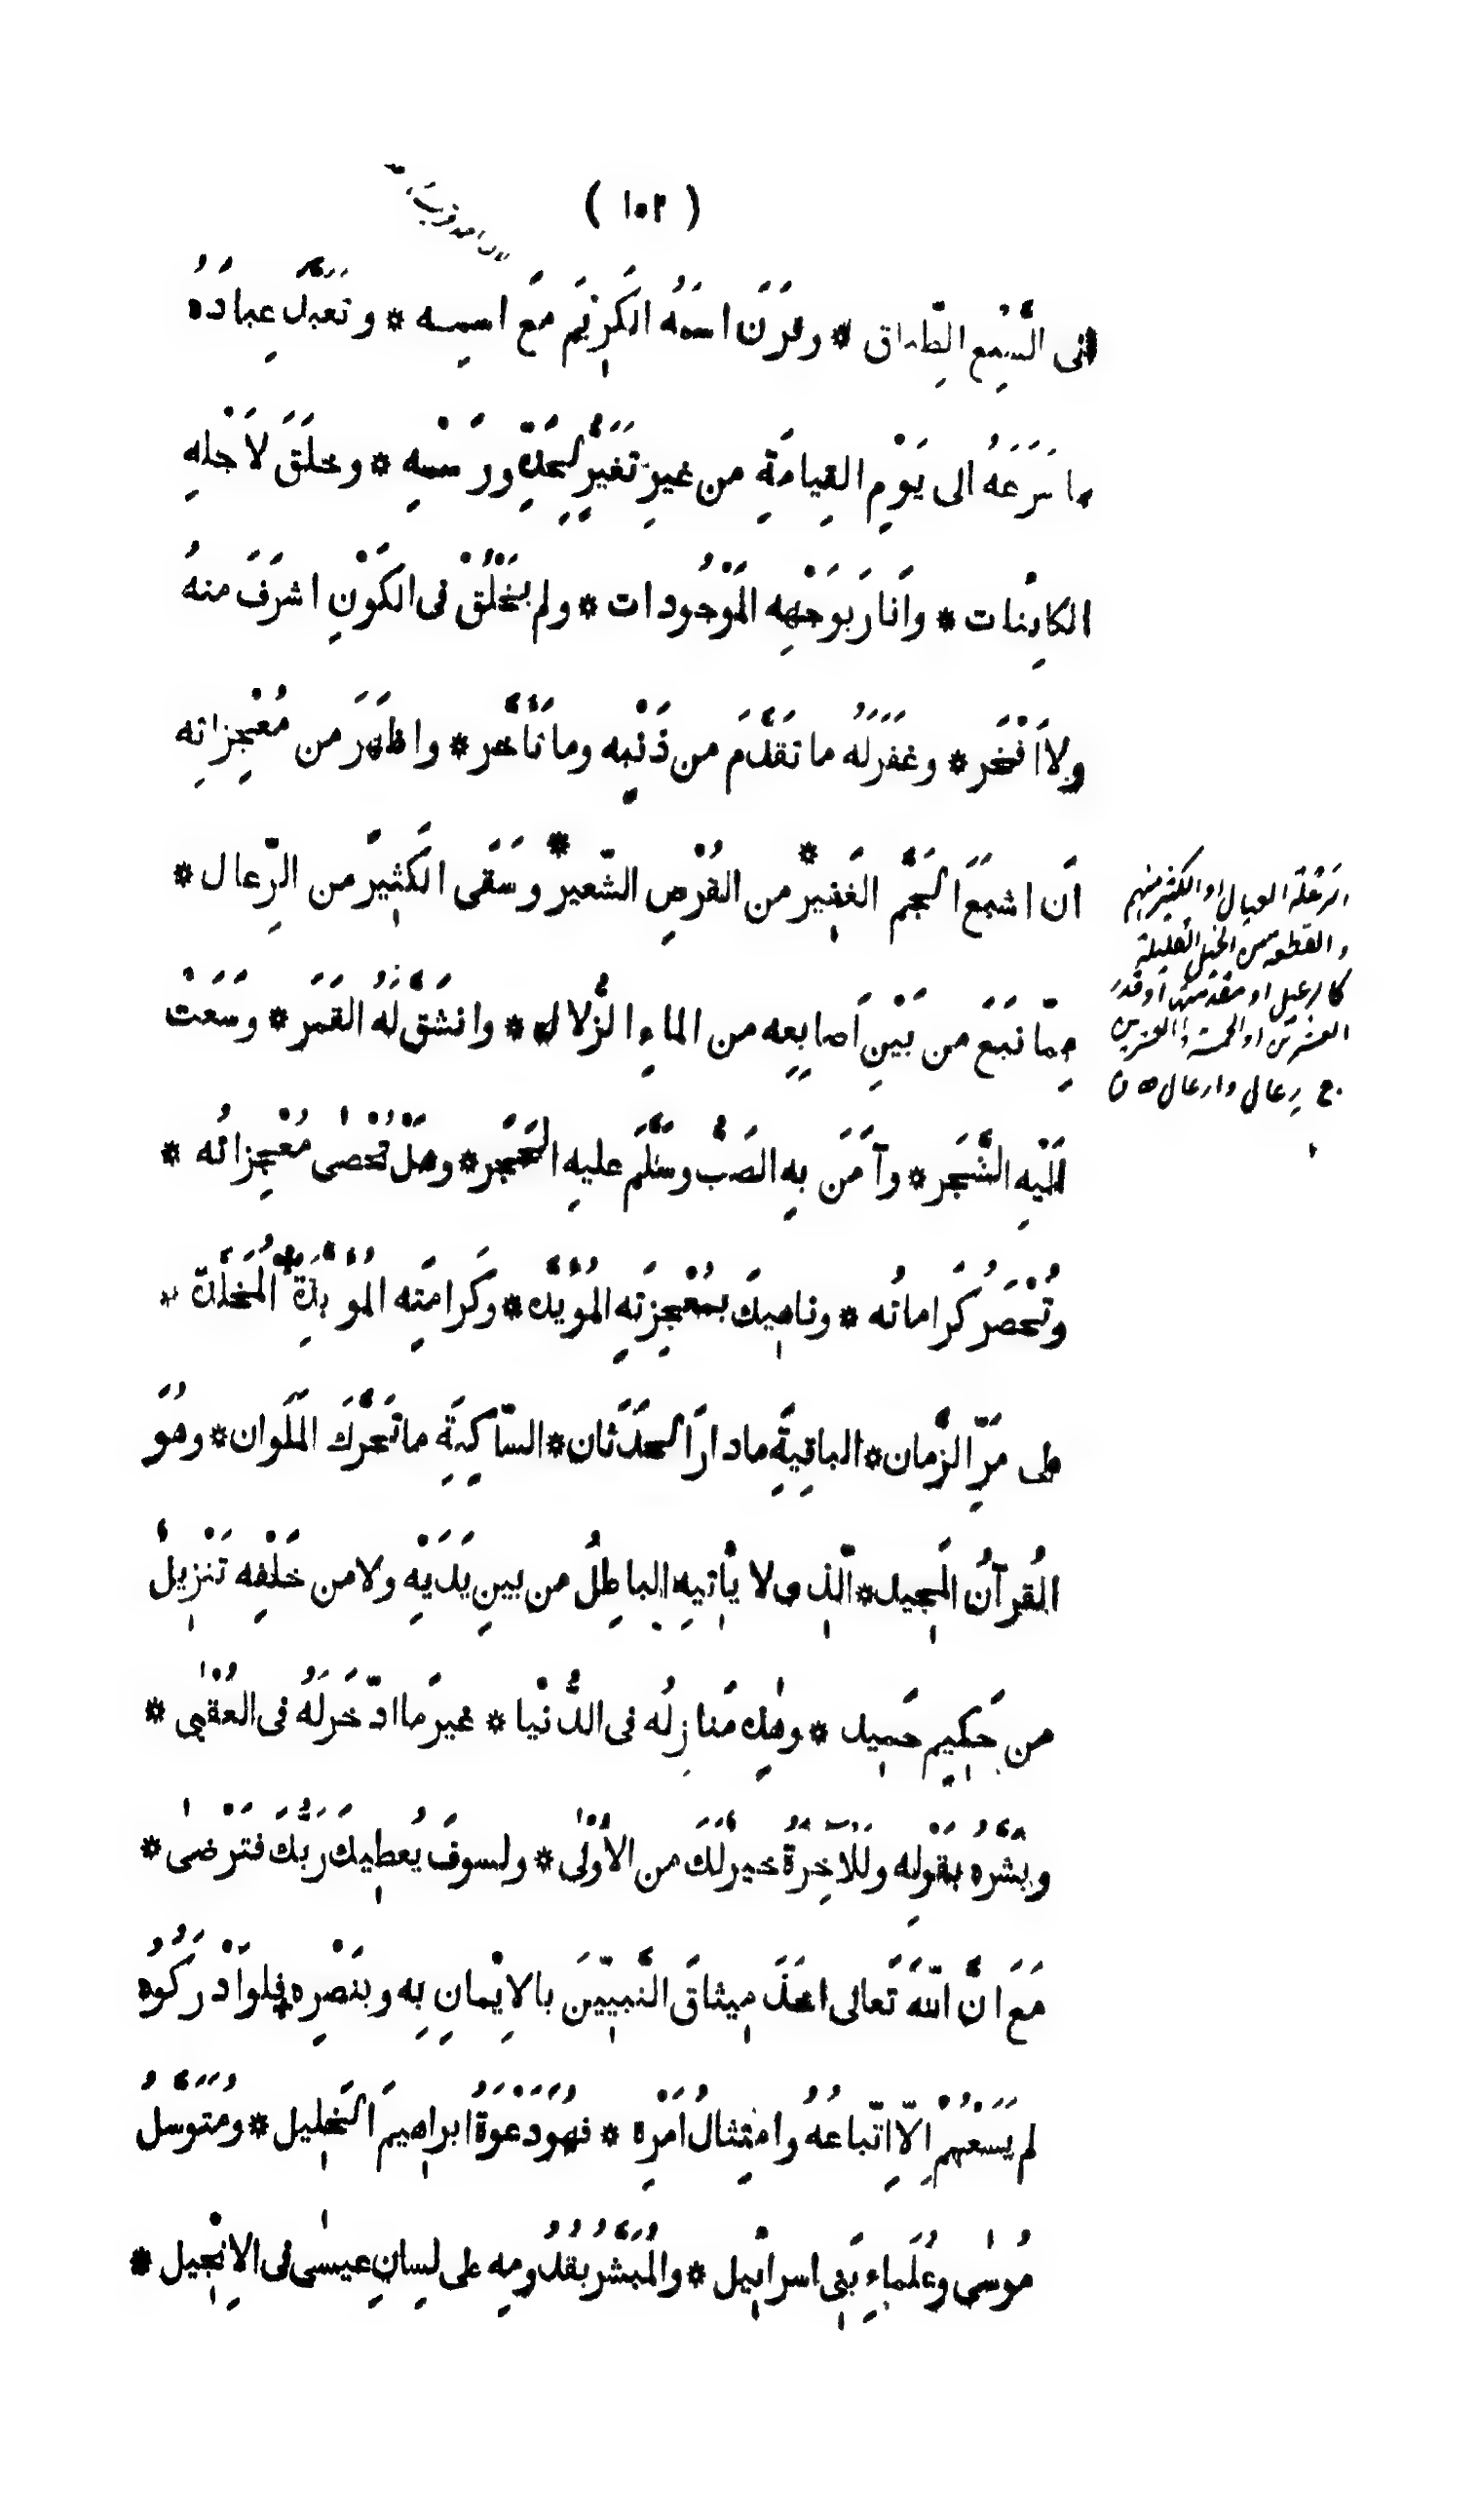 ( ١٠٢ )
فى السَّبْعِ الطِّباق * وقَرَنَ اسمَهُ الكَريْمَ مَعَ اسمِه * وتَعَبَّدَ عِبادَهُ
ما شَرَعَهُ الى يَوْمِ القِيامَةِ من غيرِ تَغَيُّرٍ لِحَدِّهِ ورَسْمِه * وخلَقَ لاَجْلِه
الكائِنات * وأَنارَ بوَجْهِه المَوْجُودات * ولم يَخْلُقْ فى الكَوْنِ اشرَفَ منهُ
ولا أَفْخَر * وغَفَرَ لَهُ ما تقَدَّمَ من ذَنْبِه وما تأَخَّر * واظهَرَ من مُعْجِزاتِه
أَن اشبَعَ الجَمَّ الغَفِيرَ * من القُرْصِ الشَّعير * وسَقَى الكَثِيرَ من الرِّعال *
مِمّا نبَعَ من بَيْنِ أَصابِعِه من الماءِ الزُّلال * وانشَقَّ لَهُ القَمَر * وسَعَتْ
إلَيْهِ الشَّجَر * وآمَنَ بِهِ الضَبُّ وسَلَّمَ عليهِ الحَجَر * وهَلْ تُحْصٰى مُعْجِزاتُه *
وتُحْصَرُ كَراماتُه * وناهِيكَ بمُعْجِزَتِهِ المُؤَيَّدَه * وكَرامَتِه المُؤَبَّدَةِ * المُخَلَّدَة *
على مَرِّ الزَّمان * الباقِيَةِ ما دارَ الحَدَثان * السّاكِنَةِ ما تَحَرَّكَ المَلَوان * وهُوَ
القُرآنُ المَجِيد * الَّذِى لا يأْتِيهِ الباطِلُ من بينِ يَدَيْهِ ولا من خَلْفِه تَنْزِيلٌ
من حَكِيمٍ حَمِيد * وهٰذِه مَنازِلُه فى الدُّنْيا * غيرَ ما ادَّخَرَ لَهُ فى العُقْبٰى *
وبَشَّرَهُ بقَوْلِه ولَلآخِرَةُ خيرٌ لَكَ من الأُوْلٰى * ولسوفَ يُعطِيكَ رَبُّكَ فتَرْضٰى *
مَعَ انَّ اللّٰهَ تَعالى اخَذَ مِيثاقَ النَّبِيِّينَ بالاِيْمانِ بِه وبنَصْرِه * فلو أَدْرَكُوه
لم يَسَعْهُمْ اِلاّ اتِّباعُهُ وامْتِثالُ أَمْرِه * فهُوَ دَعْوَةُ ابراهِيمَ الخَلِيل * ومُتَوَسَّلُ
مُوسٰى وعُلَماءِ بَنِى اسرائِيل * والمُبَشَّرُ بقُدُومِه على لِسانِ عيسٰى فى الاِنْجِيل *
الرَعْلة العيال او الكثير منهم
والقطعة من الخيل القليلة
كالرعيل او مقدمتها او قدر
العشرين او الخمسة والعشرين
ج رعال وارعال